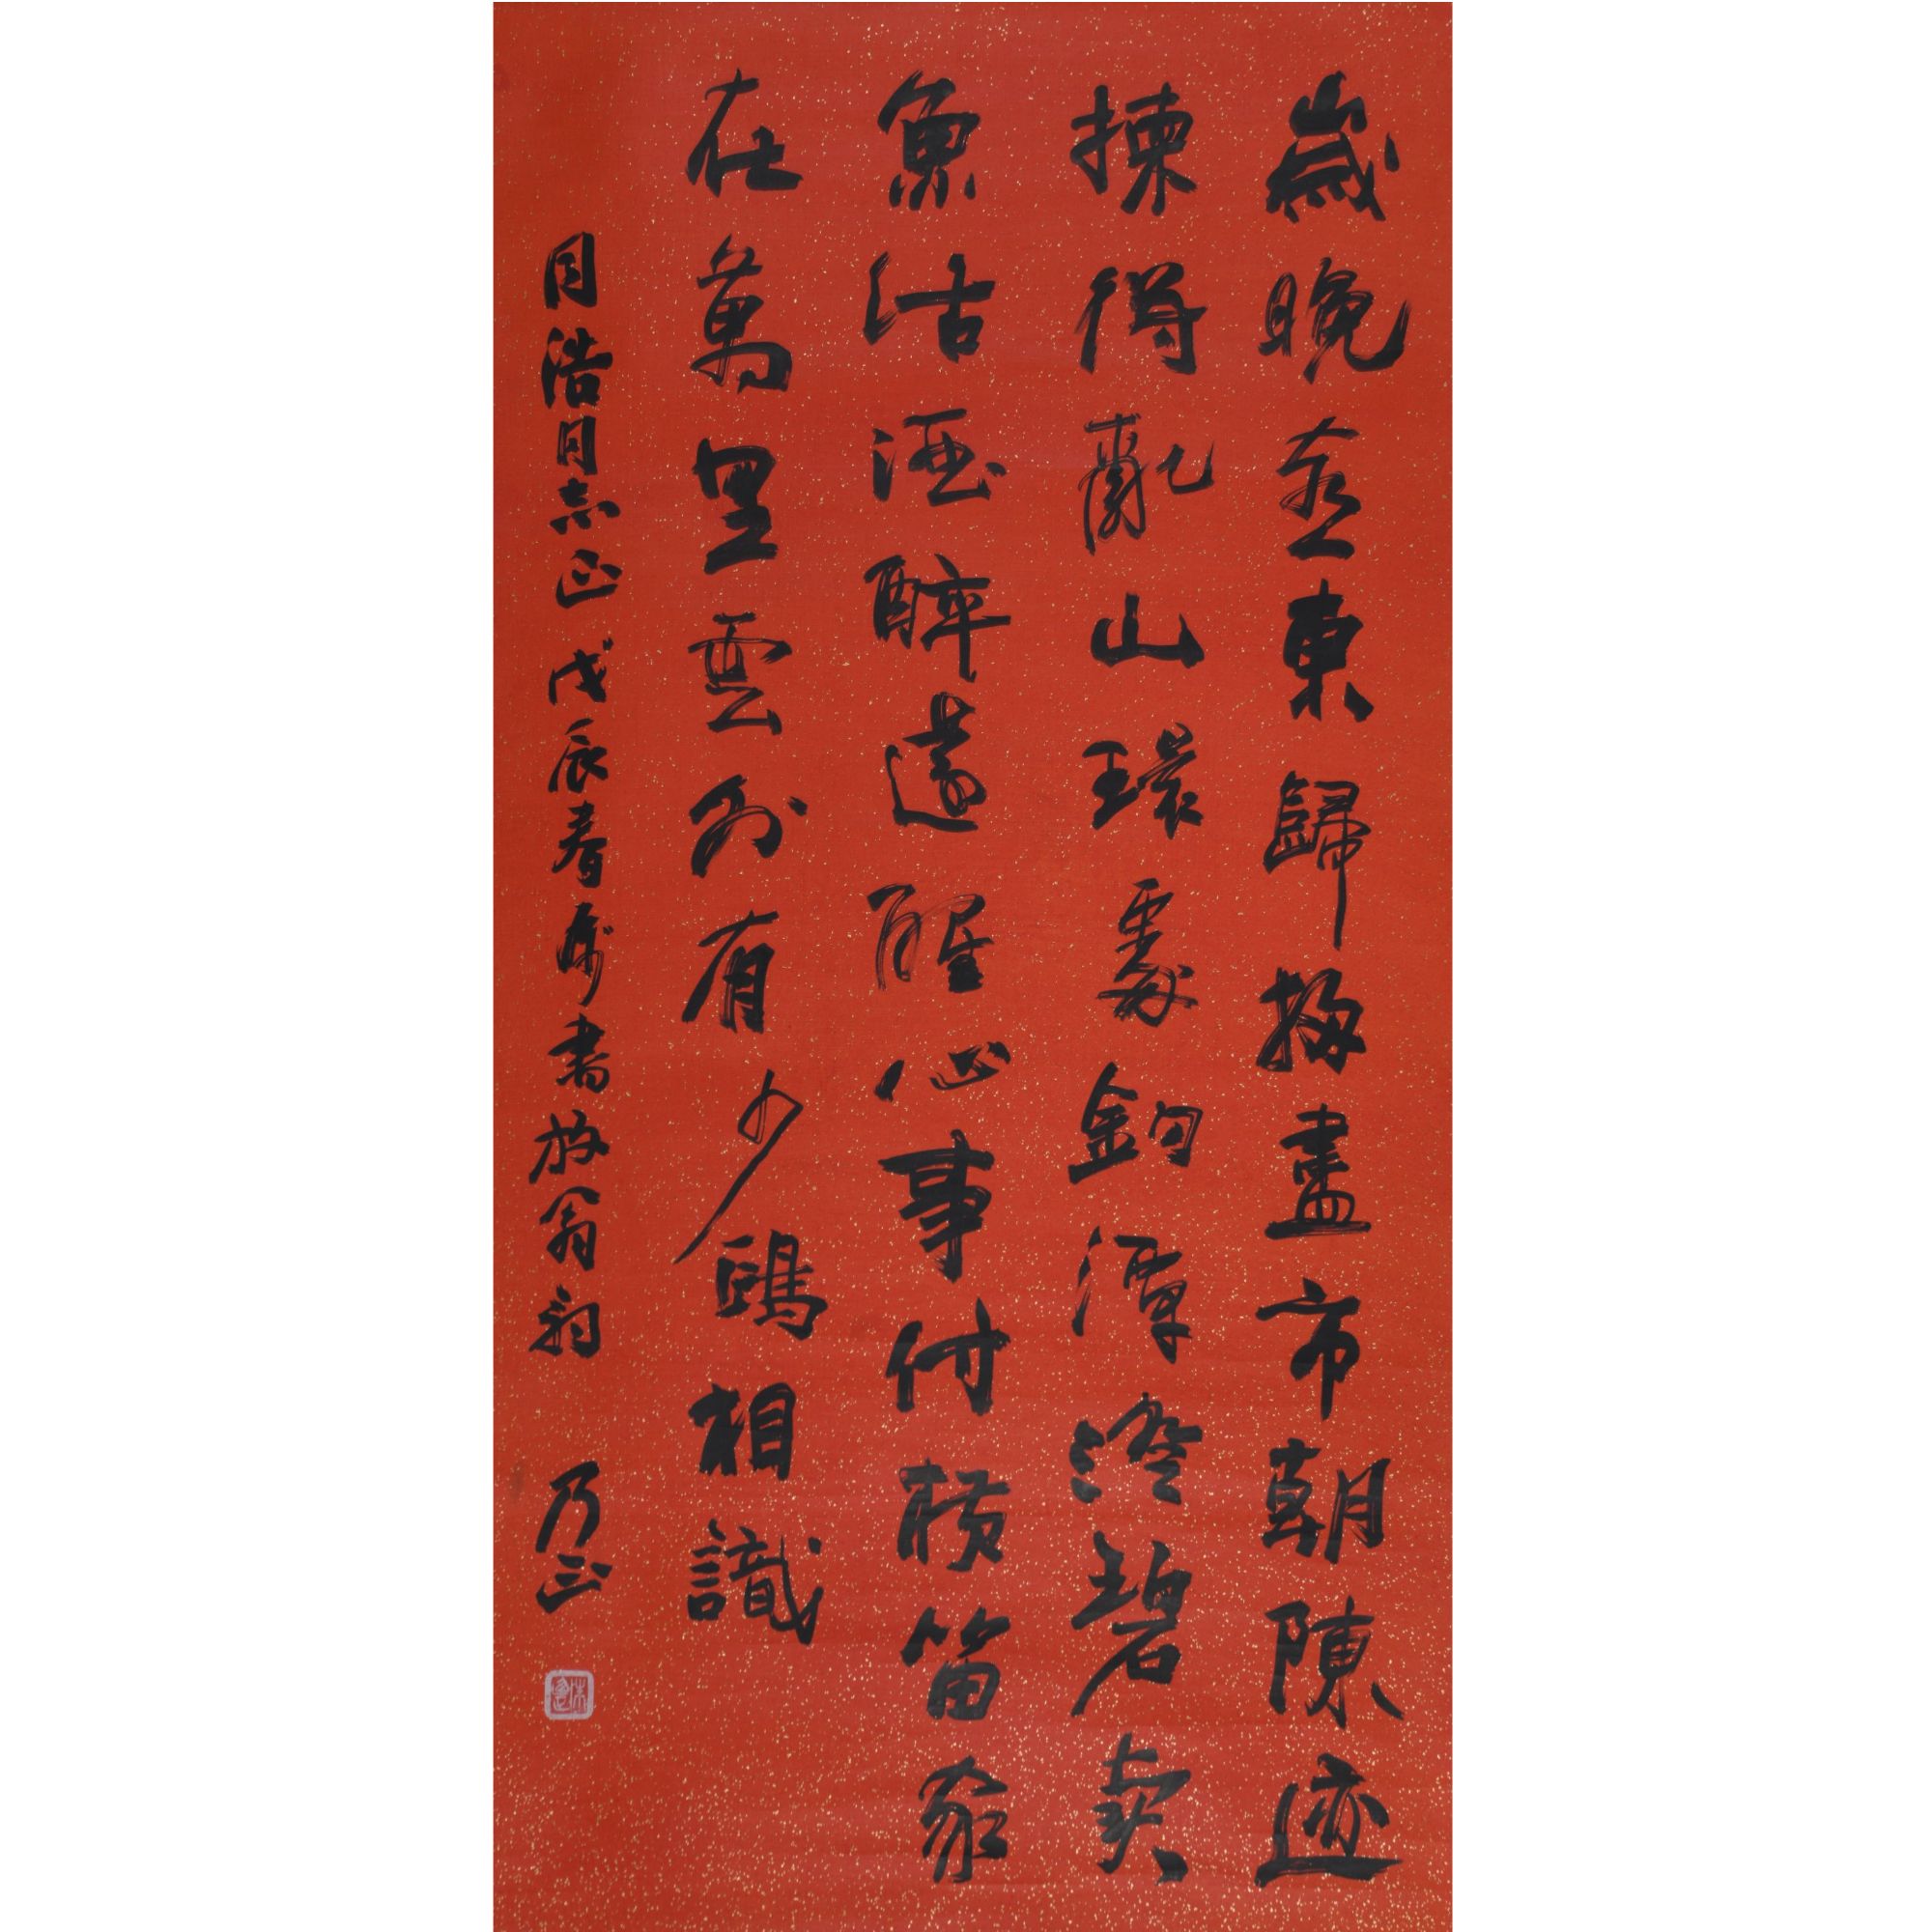 歲晚喜東歸掃盡市朝陳迹
揀得亂山環處釣潭澄碧賣
魚沽酒醉還醒心事付横笛家
在萬里雲外有少鷗相識
浩同志正 戊辰春 書放翁詞 乃正